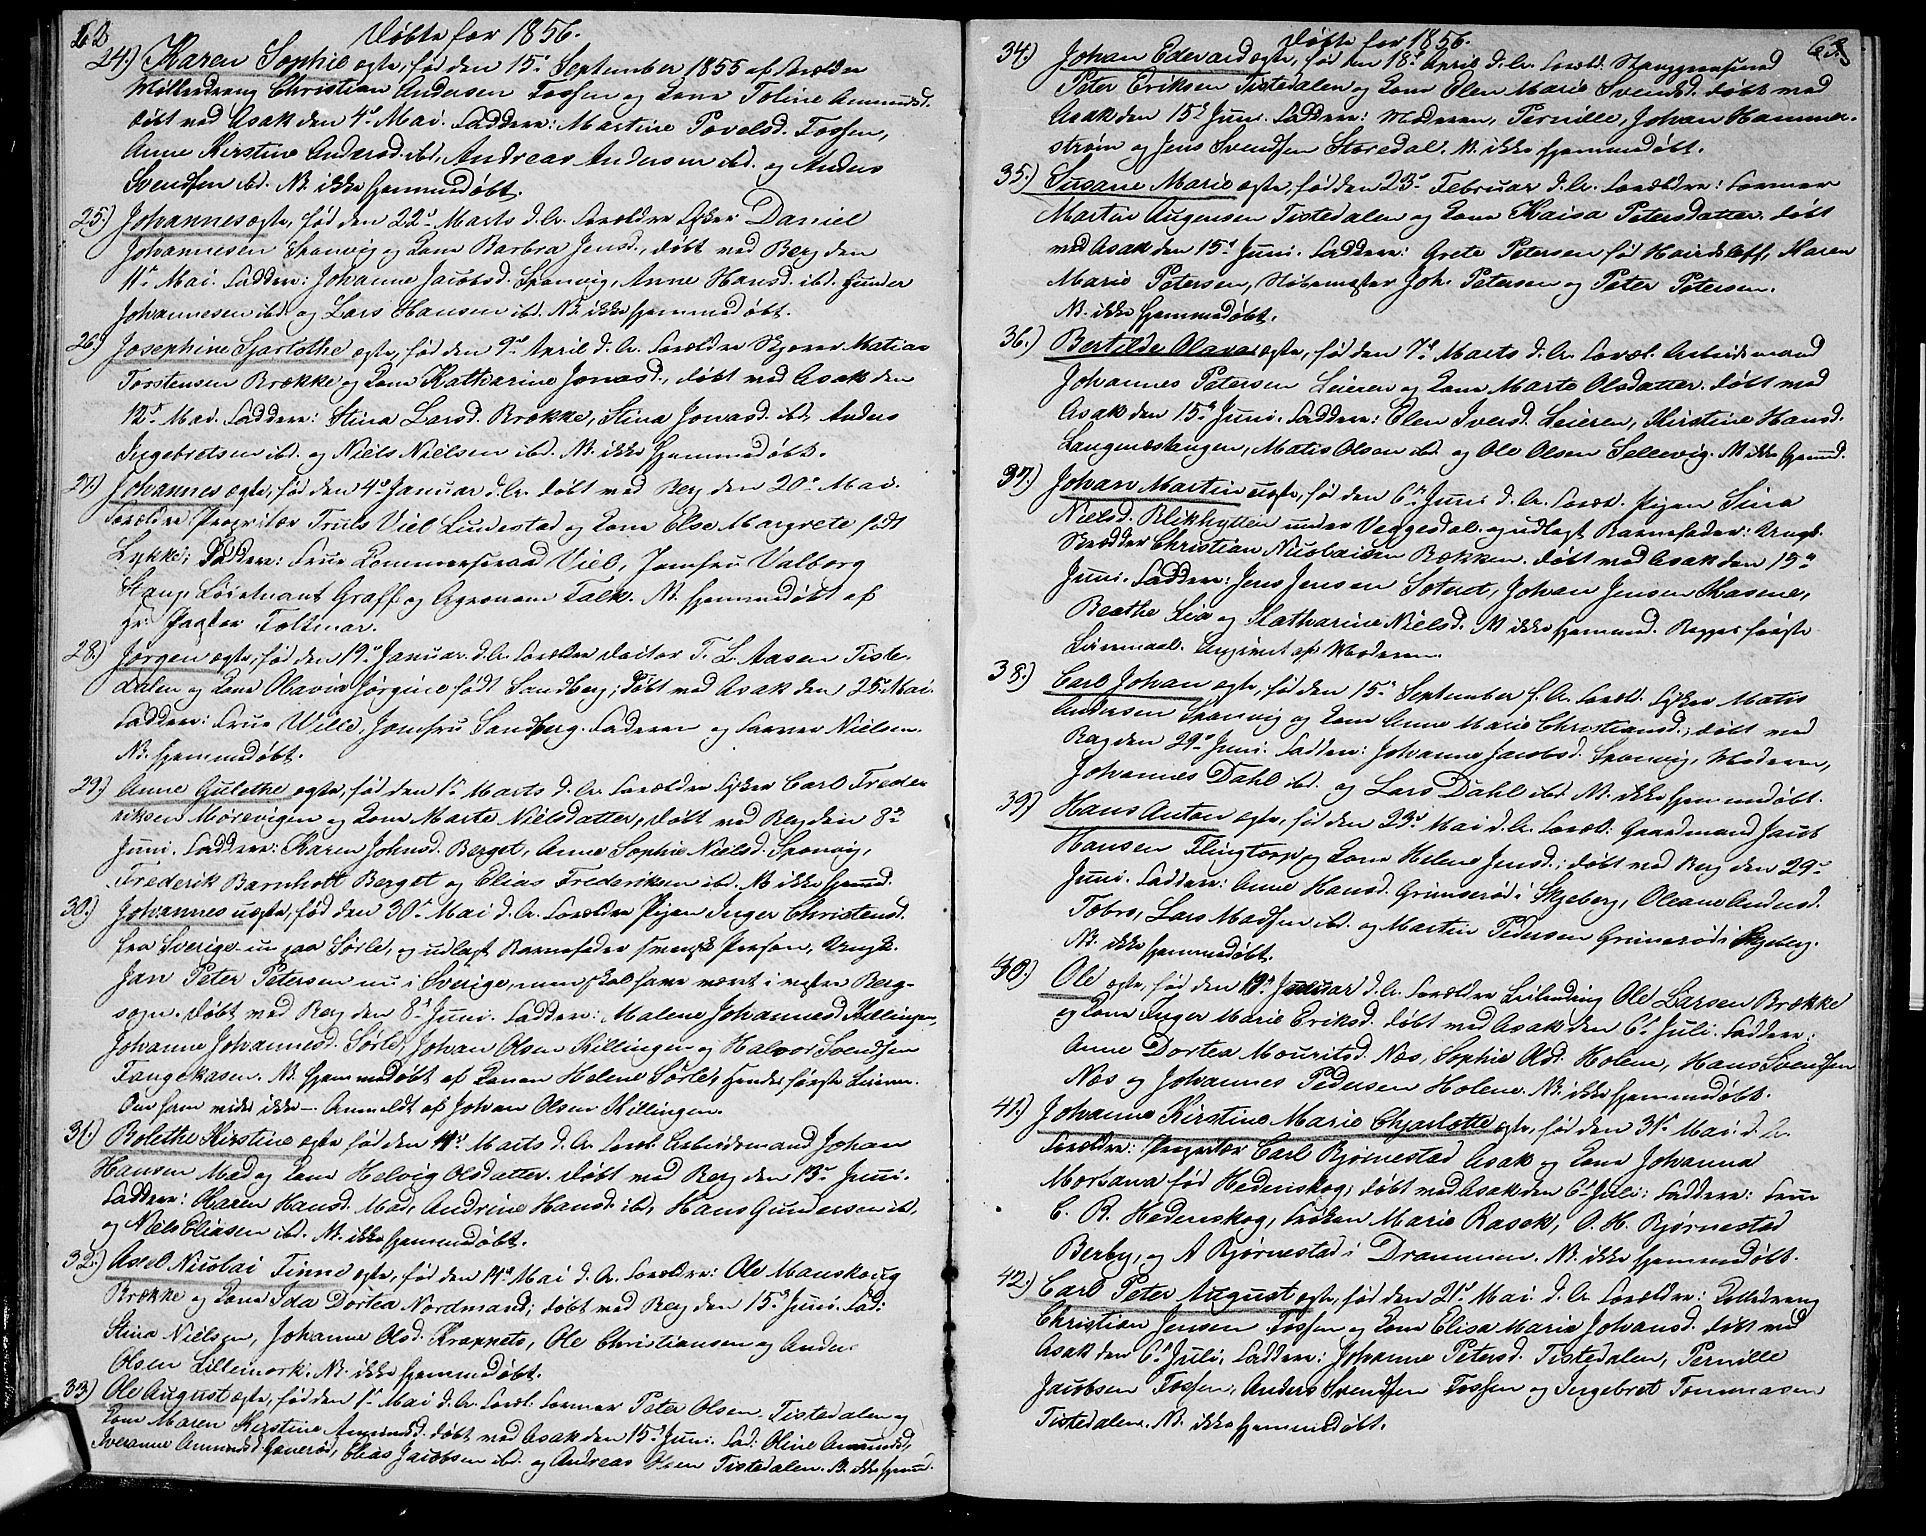 62
Døbte for 1856.
24.) Karen Sophie ægte, fød den 15de September 1855 af Forældre
Møllerdreng Christian Andersen Fossen og Kone Toline Amunds.
døbt ved Asak den 4de Mai. Faddere: Martine Povelsd. Fossen,
Anne Kirstine Andersd. ibd. Andreas Andersen ibd. og Anders
Svendsen ibd. NB. ikke hjemmedøbt.
25.) Johannes ægte, fød den 22de Marts d. A. Forældre Daniel
Johannesen Sponvig og Kone Barbra Jensd., døbt ved Berg den
11te Mai. Faddere: Johanne Jacobsd. Sponvig, Anne Hansd. ibd. Gunder
Johannesen ibd. og Lars Hansen ibd. NB. ikke hjemmedøbt.
26.) Josephine Sjarlothe ægte, fød den 9de April d. A. Forældre Matias
Torstensen Brække og Kone Katharine Jonasd., døbt ved Asak den
12te Mai. Faddere: Stina Larsd. Brække, Stina Jonasd. ibd. Anders
Ingebretsen ibd. og Niels Nielsen ibd. NB. ikke hjemmedøbt.
27.) Johannes ægte, fød den 4de Januar d. A. døbt ved Berg den 20de Mai.
Forældre: Proprietær Truls Viel Lundestad og Kone Else Margrete født
Lykke; Faddere: Frue Kommerseraad Viel, Jomfru Valborg
Stang, Løitenant Graff og Agronom Falk. NB. hjemmedøbt af
Hr. Pastor Foltmar.
28.) Jørgen ægte, fød den 19de Januar d. A. Forældre Doctor T. L. Aasen Tiste-
dalen og Kone Olavia Jørgine født Sandberg; døbt ved Asak den 25de Mai.
Faddere: Frue Wille, Jomfru Sandberg. Faderen og Farver Nielsen.
NB. hjemmedøbt.
29.) Anne Gulethe ægte, fød den 1te Marts d. A. Forældre Carl Frede-
riksen Mørevigen og Kone Marte Nielsdatter, døbt ved Berg den 8de
Juni. Faddere: Karen Johnsd. Berget, Anne Sophie Nielsd. Sponvig,
Frederik Barnholt Berget og Elias Frederiksen ibd. NB. ikke hjemmd.
30.) Johannes uægte, fød den 30te Mai d. A. Forældre Pigen Inger Christensd.
fra Sverige nu paa Sørle, og udlagt Barnefader svensk Person, Ungk.
Jan Peter Petersen nu i Sverige, men skal have været i vestre Berg-
sogn. døbt ved Berg den 8de Juni. Faddere: Malene Johannesd. Killingen,
Johanne Johannesd. Sørle, Johan Olsen Killingen og Halvor Svendsen
Fangekasen. NB. hjemmedøbt af Konen Helene Sørle, hendes første Leierm.
Om ham vides ikke — Anmeldt af Johan Olsen Killingen.
31.) Bolethe Kirstine ægte fød den 4de Marts d. A. Foræl: Arbeidsmand Johan
Hansen Mad og Kone Helvig Olsdatter. døbt ved Berg den 13de Juni.
Faddere: Karen Hansd. Mad, Andrine Hansd. ibd, Hans Gundersen ibd.
og Niels Eliasen ibd. NB. ikke hjemmedøbt.
32.) Axel Nicolai Finne ægte, fød den 14de Mai d. A. Forældre: Ole Manskoug
Brække og Kone Ida Dortea Nordmand; døbt ved Berg den 15de Juni. Fad:
Stina Nielsen, Johanne Olsd. Krappeto, Ole Christiansen og Anders
Olsen Lillemork. NB. ikke hjemmedøbt.
33.) Ole August ægte, fød den 1te Mai d. A. Foræl. Former Peter Olsen Tistedalen og
Kone Maren Kirstine Amundsd. døbt ved Asak den 15de Juni. Fad: Oline Amundsd,
Amundsd. Elias Jacobsen ibd. og Andreas Olsen Tistedalen. NB. ikke hjemmd.
Døbte for 1856.
63
34.) Johan Edevard ægte, fød den 18de April d. A. Foræld: Stangjernsmed
Peter Eriksen Tistedalen og Kone Elen Marie Svendsd. døbt ved
Asak den 15de Juni. Faddere: Moderen, Pernille, Johan Hammer-
strøm og Jens Svendsen Storedal. NB. ikke hjemmedøbt.
35.) Susane Marie ægte, fød den 23de Februar d. A. Forældre: Former
Martin Augensen Tistedalen og Kone Kaisa Petersdatter. døbt
ved Asak den 15de Juni. Faddere: Grete Petersen fød, Karen
Marie Petersen, Støbemester Joh. Petersen og Peter Petersen.
NB. ikke hjemmedøbt.
36.) Bertilde Olava ægte, fød den 7de Marts d. A. Foræl. Arbeidsmand
Johannes Petersen Leieren og Kone Marte Olsdatter. døbt ved
Asak den 15de Juni. Faddere: Elen Iversd. Leieren, Kirstine Hansd.
Langnæstangen, Matis Olsen ibd. og Ole Olsen Sellevig. NB ikke hjemmd.
37.) Johan Martin uægte, fød den 6te Juni d. A. Foræl. Pigen Sina
Nielsd. Blikhytten under Veggesdal og udlagt Barnefader: Ungk.
Skrædder Christian Nicolaisen Bækken. døbt ved Asak den 15de
Juni. Faddere: Jens Jensen Soteret, Johan Jensen Kasene,
Beathe Lia og Katharine Nielsd. NB ikke hjemmd. Begges første
Leiermaal. Angivet af Moderen.
38.) Carl Johan ægte, fød den 15de September f. A. Foræl. Matis
Andersen Sponvig og Kone Anne Marie Christiansd., døbt ved
Berg den 29de Juni. Faddere: Johanne Jacobsd. Sponvig, Moderen,
Johannes Dahl ibd. og Lars Dahl ibd. NB. ikke hjemmedøbt.
39.) Hans Anton ægte, fød den 23de Mai d. A. Foræl: Gaardmand Jacob
Hansen Flingtorp og Kone Helene Jensd.; døbt ved Berg den 29de
Juni. Faddere: Anne Hansd. Grimserød i Skjeberg, Oleane Andersd.
Tobro, Lars Madsen ibd. og Martin Pedersen Grimserød i Skjeberg.
NB. ikke hjemmedøbt.
40.) Ole ægte, fød den 19de Januar d. A. Forældre Leilending Ole Larsen Brække
og Kone Inger Marie Eriksd. døbt ved Asak den 6te Juli. Faddere:
Anne Dortea Mouritsd. Næs, Sophie Olsd. Holene, Hans Svendsen
Næs og Johannes Pedersen Holene. NB. ikke hjemmedøbt.
41.) Johanne Kirstine Marie Chjarlotte ægte, fød den 31te Mai. d. A.
Forældre: Proprietær Carl Bjørnestad Asak og Kone Johanna
Morhana fød Hedenskog; døbt ved Asak den 6te Juli; Faddere: Frue
C. R. Hedenskog, Frøken Marie Rasek, O. H. Bjørnestad
Berby, og A Bjørnestad i Drammen. NB. ikke hjemmedøbt.
42.) Carl Peter August ægte, fød den 21de Mai. d. A. Forældre:
Christian Jensen Fossen og Kone Elisa Marie Johansd. døbt ved
Asak den 6te Juli; Faddere: Johanne Petersd. Tistedalen, Pernille
Jacobsen Fossen, Anders Svendsen Fossen og Ingebret Tommasen
Tistedalen. NB. ikke hjemmedøbt.